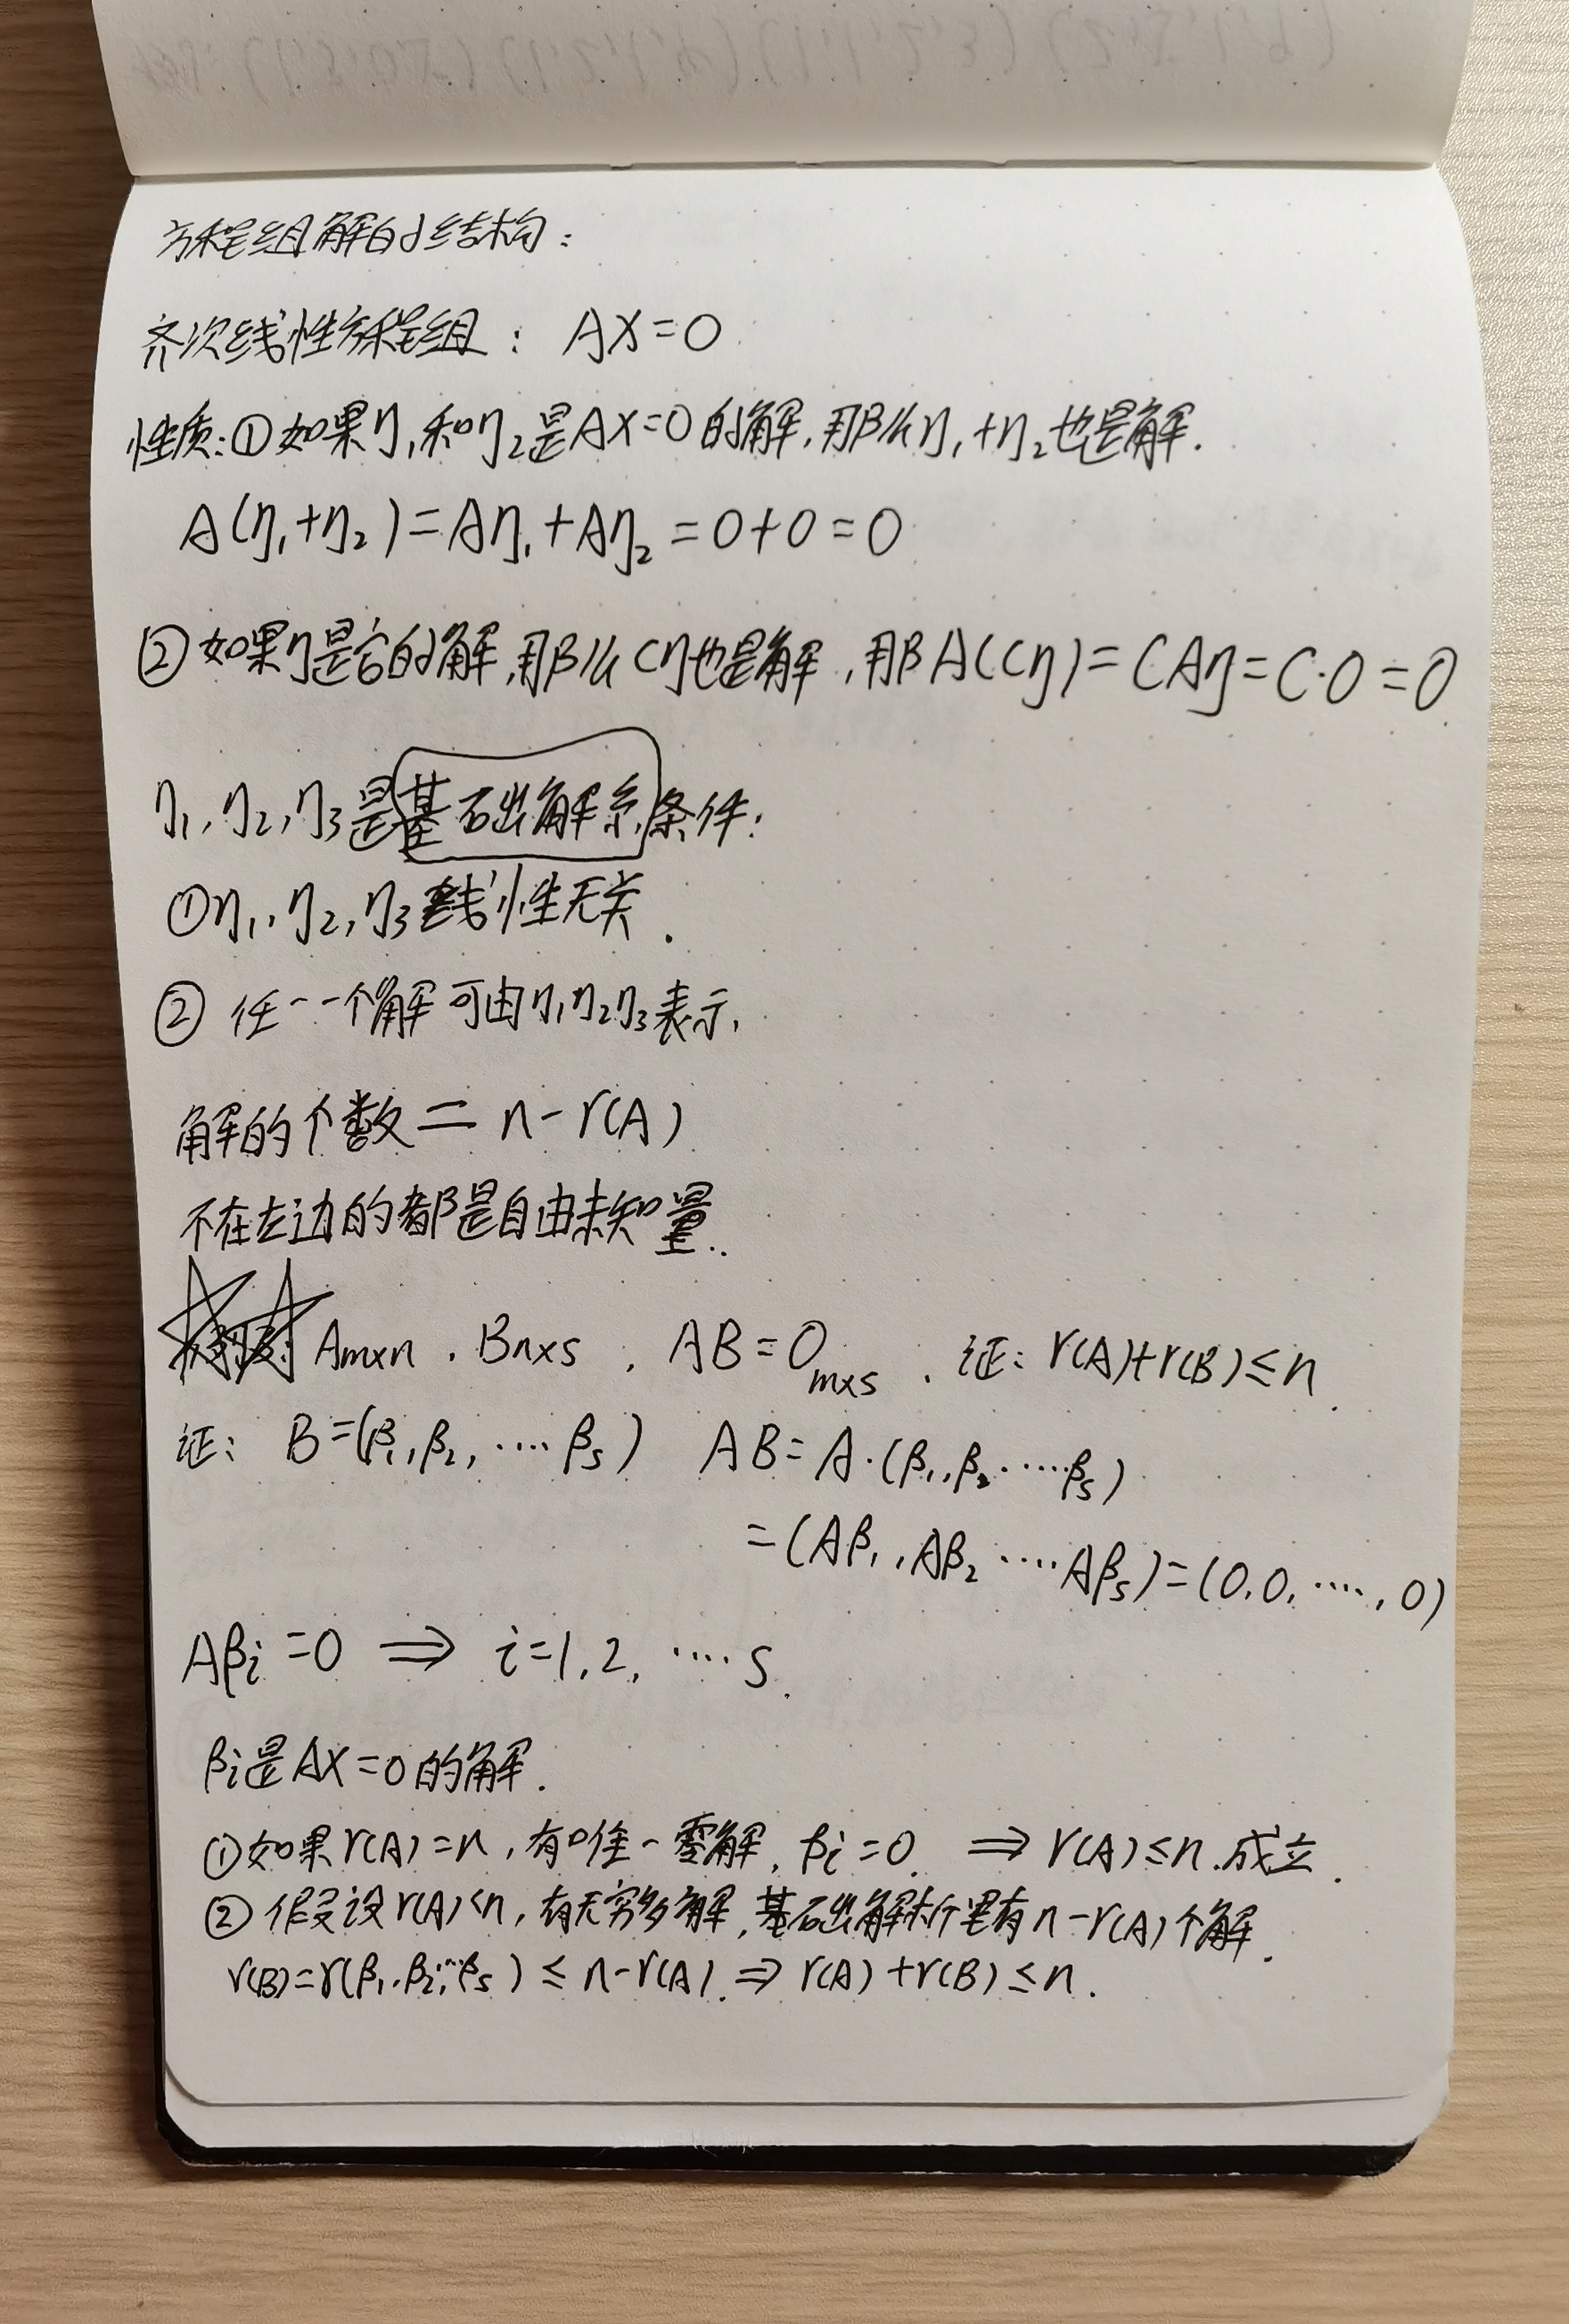 方程组解的结构:
齐次线性方程组: AX=0
性质:①如果η₁和η₂是AX=0的解,那么η₁+η₂也是解.
A(η₁+η₂)=Aη₁+Aη₂=0+0=0
②如果η是它的解,那么Cη也是解,那A(Cη)=CAη=C·0=0
η₁,η₂,η₃是基础解系条件:
①η₁,η₂,η₃线性无关.
②任一个解可由η₁η₂η₃表示,
解的个数=n-r(A)
不在左边的都是自由未知量..
Am×n.Bn×s,AB=0m×s.证:r(A)+r(B)≤n.
证: B=(β₁,β₂,····βs) AB=A·(β₁,β₂·····βs)
=(Aβ₁,Aβ₂····Aβs)=(0,0,····,0)
Aβi=0 ⇒ i=1,2,····s.
βi是AX=0的解.
①如果r(A)=n,有唯一零解,βi=0. ⇒ r(A)≤n.成立.
②假设r(A)<n,有无穷多解,基础解析里有n-r(A)个解.
r(B)=r(β₁,β₂,···βs)≤n-r(A).⇒r(A)+r(B)≤n.